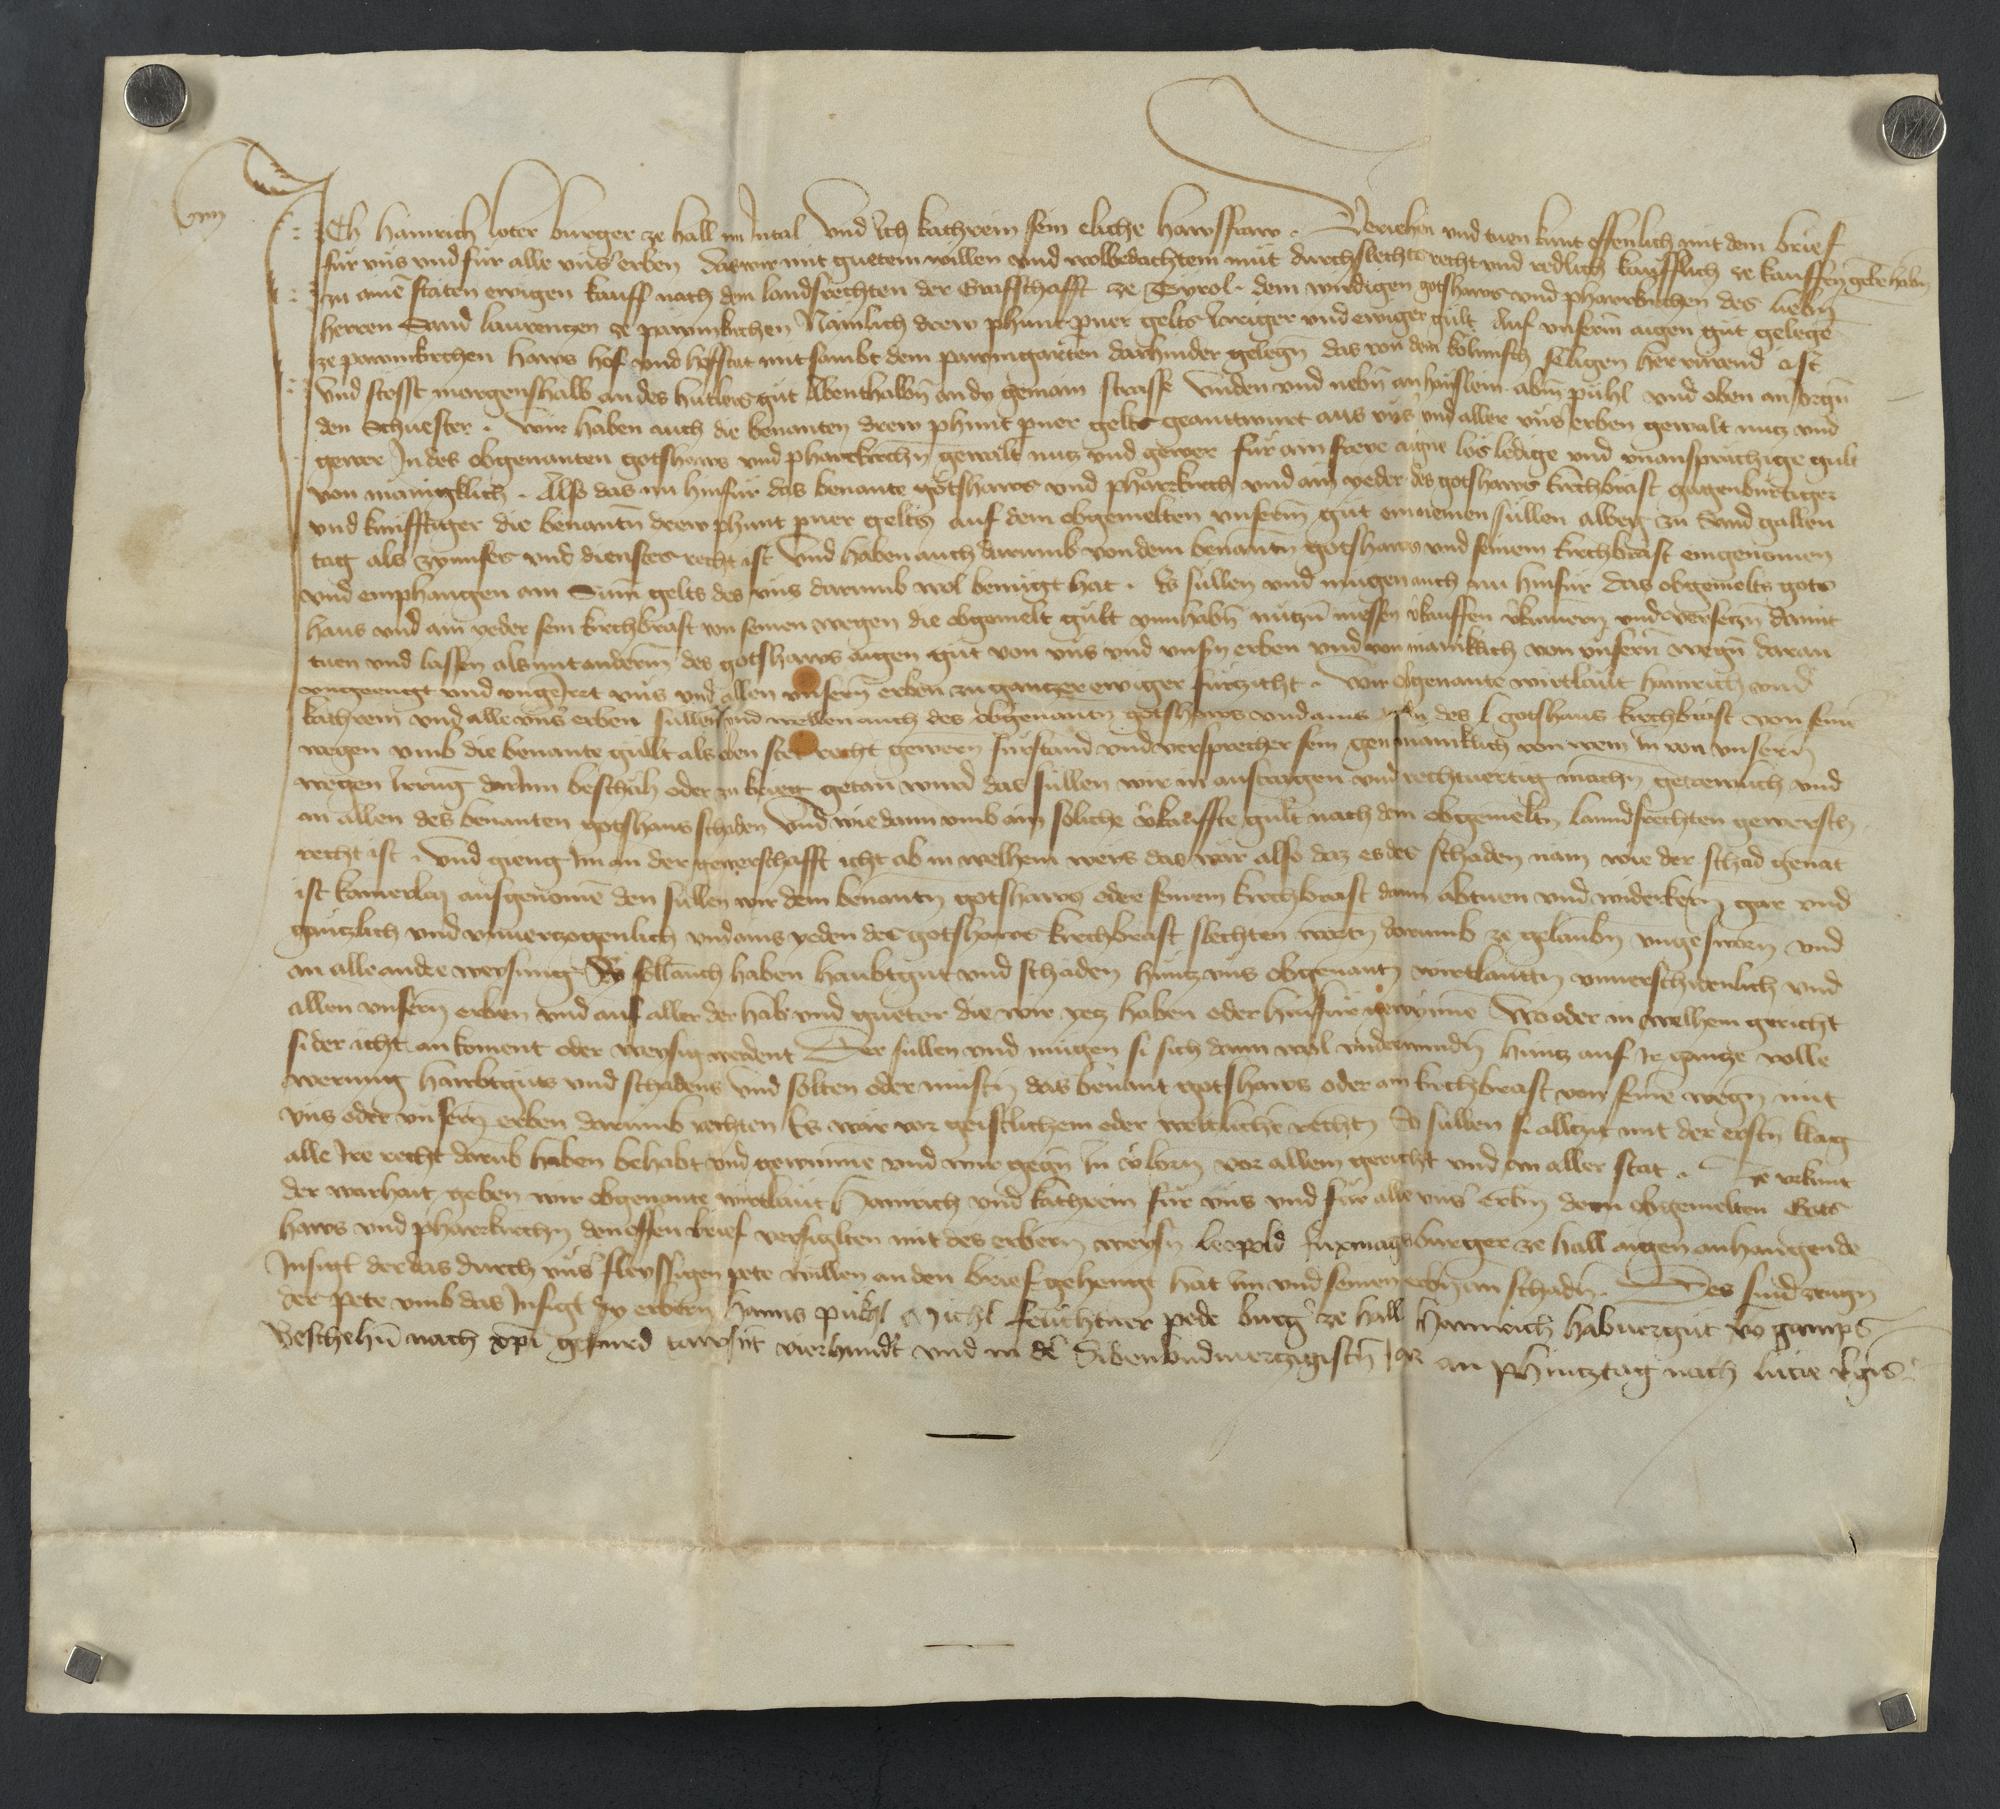 Ich Hainrich loter burger ze hall im Intal Und Ich kathrein sein eliche hawsfraw . Veriehen und tuen kunt offenlich mit dem brief
für uns und für alle uns erben das wir mit guetem willen und wolbedachtem mut durchslechts recht und redlich kaufflich ze kauffen geben haben
zu aine staten ewigen kauff nach dem landsrechten der Grafschafft ze Tyrol . dem wirdigen gotshaws und pharrkirchen des lieben
herren Sand laurentzen ze pawmkirchen Nämlich drew phunt perner gelts Jeriger und ewiger gült Auf unserm aigen gut gelegen
ze pawmkirchen haws hof und hofstat mitsambt dem pawmgarten dahinder gelegen das von dem kolmnsch seligen her rürend ist
Und stosst margenshalb an des hutlers gut Abenthalbn an dy gemain strasse Unden und nebn an häuslein abm pühl und oben an Jorgn
den Schuester . Wir haben auch die benanten drew phunt perner gelts geantwurt aus uns und aller uns erben gewalt nutz und
gewer In des obgenanten gotshaws und pharrkirchn gewalt nutz und gewer für ain freye aigne los ledige und unansprächige gult
von mänigklich . Also das nu hinfür das benante gotshaws und pharrkirch und ain yeder des gotshaws kirchbräst gagenburtiger
und künfftiger die benantn drew phunt perner gelts auf dem obgemelten unserm gut einnemen süllen albeg zu Sand gallen
tag als zynnses und dienstes recht ist Und haben auch darumb von dem benantn gotshaws und seinem kirchbräst eingenomen
und emphangen ain Sum gelts des uns darumb wol benügt hat . Es süllen und mügen auch nu hinfür das obgemelts gots
haus und ain yeder sein kirchbräst von seinen wegen die obgemelt gült innhabn nutzn niessen verkauffen verkumern und versetzn damit
tuen und lassen als mit anderm des gotshaws aigen gut von uns und unsn erben und von maniklich von unsern wegn daran
ungeengt und ungeirret uns und allen unsern erben zu gantzer ewiger fürzicht . Wir obgenante wirtläut hainrich und
kathrein und alle uns erben süllen und wellen auch des obgenantn gotshaws und ains yeden des gotshaus kirchbräst von seinen
wegen umb die benante güllt als oben stet recht gewern fürstand und versprecher sein gen maniklich von wem In von unsern
wegen Irrung darinn beschäh oder zu krieg getan wurd das süllen wir in austragen und rechtvertig machn getrewlich und
an allen des benanten gotshaus schaden Und wie dann umb ain soliche verkauffte gult nach dem obgemeltn lanndsrechten gewersch
recht ist . Und gieng Im an der gewerschafft icht ab in welhem weis das wär also daz es des schaden näm wie der schad genant
ist kamerlay ausgenome den süllen wir dem benantn gotshaws oder seinem kirchbräst dann abtuen und widerkern gar und
gäntzlich und unuertzogenlich und ains yeden des gotshaws kirchbräst slechten wortn darumb ze gelaubn ungesworn und
an alle andre weysung . Es soll auch haben haubtgut und schaden hintz uns obgenantn wirtläutn unuerschidenlich und
allen unsern erben und auf aller der hab und gueter die wir yetz haben oder hinfür gewinne Wo oder in welhem gericht
si der icht ankoment oder weysig werdent Der süllen und mügen si sich dann wol underwinden hintz auf Ir gantze volle
werung haubtguts und schadens Und solten oder müstn das benant gotshaws oder ain kirchbräst von seine wegn mit
uns oder unsern erben darumb rechten Es wär vor geistlichem oder weltlichem rechtn So süllen si allzeit mit der erstn klag
alle Ire recht darumb haben behabt und gewunne und wir gegn In verlorn vor allem gericht und an aller stat . Ze urkunt
der warhait geben wir obgenante wirtläut Hainrich und kathrein für uns und für alle uns erbn dem obgemelten Gots
haws und pharrkirchn den offen brief versiglten mit des erbern weysn leopold fuxmagn burger ze hall aigen anhangende
Insigl der das durch uns fleyssigen pete willen an den brief gehengt hat Im und seinen erbn an schaden . Des sind zeugn
der pete umb das Insigl dy erbern Hanns pühl Michl feuchtner pede burger ze hall Hainrich habnergut vo gamps
Beschehn nach xpi geburd tawsnt vierhundt und in de Sibenundvierzigistn Jar an Phintztag nach lucie virgis